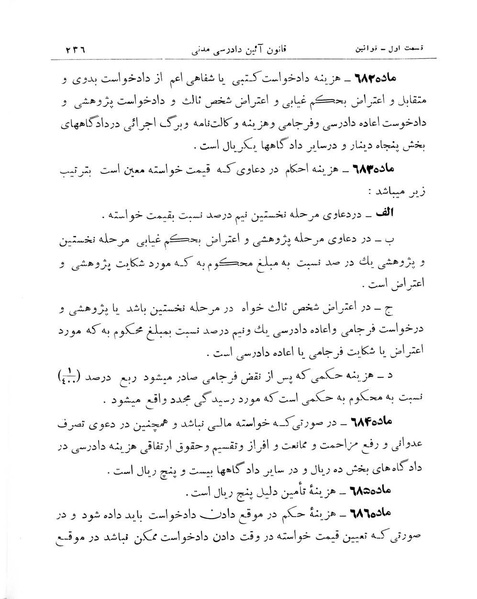 قسمت اول – قوانین
قانون آئین دادرسی مدنی
۲۳۶
ماده۶۸۲ – هزینه دادخواست کتبی یا شفاهی اعم از دادخواست بدوی و
متقابل و اعتراض بحکم غیابی و اعتراض شخص ثالث و دادخواست پژوهشی و
دادخوست اعاده دادرسی وفرجامی وهزینه وکالت‌نامه وبرگ اجرائی دردادگاههای
بخش پنجاه دینار و درسایر دادگاهها یکریال است.
ماده۶۸۳ – هزینه احکام در دعاوی که قیمت خواسته معین است بترتیب
زیر میباشد :
الف – دردعاوی مرحله نخستین نیم درصد نسبت بقیمت خواسته .
ب – در دعاوی مرحله پژوهشی و اعتراض بحکم غیابی مرحله نخستین
و پژوهشی یك در صد نسبت به مبلغ محکوم به که مورد شکایت پژوهشی و
اعتراض است .
ج – در اعتراض شخص ثالث خواه در مرحله نخستین باشد یا پژوهشی و
درخواست فرجامی واعاده دادرسی یك ونیم درصد نسبت بمبلغ محکوم به که مورد
اعتراض یا شکایت فرجامی یا اعاده دادرسی است .
د – هزینه حکمی که پس از نقض فرجامی صادر میشود ربع درصد (۱/۴۰۰)
نسبت به محکوم به حکمی است که مورد رسیدگی مجدد واقع میشود .
ماده۶۸۴ – در صورتی‌که خواسته مالی نباشد و همچنین در دعوی تصرف
عدوانی و رفع مزاحمت و ممانعت و افراز وتقسیم وحقوق ارتفاقی هزینه دادرسی در
دادگاه‌های بخش ده ریال و در سایر دادگاهها بیست و پنج ریال است .
ماده۶۸۵ – هزینهٔ تأمین دلیل پنج ریال است .
ماده۶۸۶ – هزینهٔ حکم در موقع دادن دادخواست باید داده شود و در
صورتی که تعیین قیمت خواسته در وقت دادن دادخواست ممکن نباشد در موقع